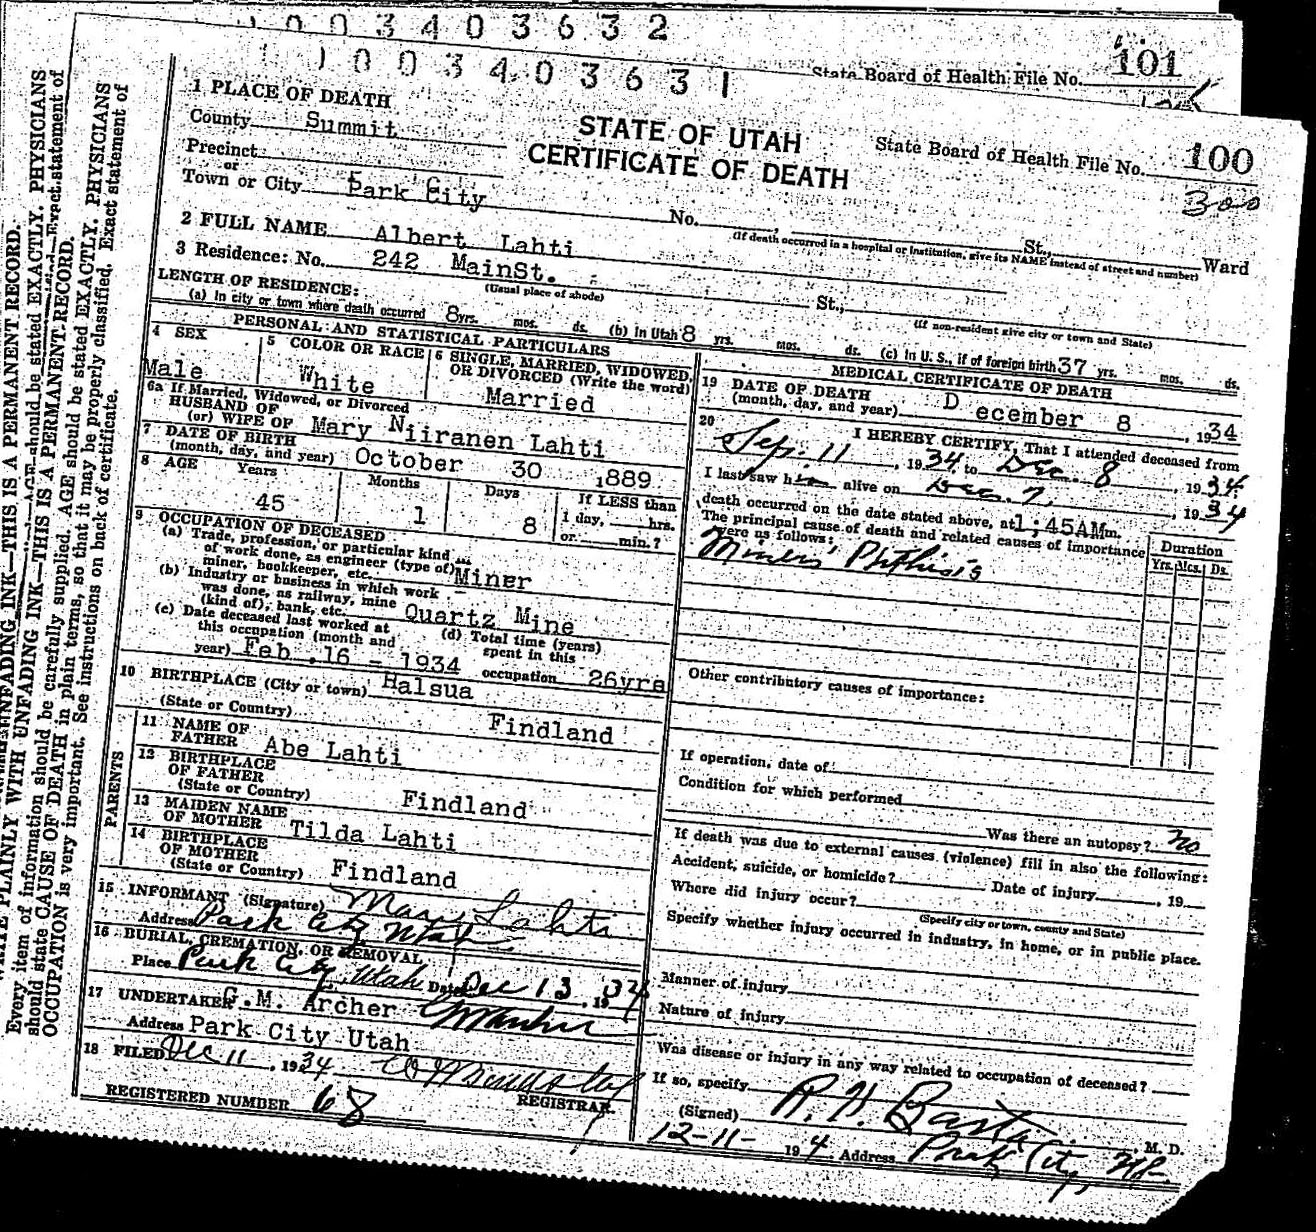 1 0 0 3 4 0 3 6 3 2
State Board of Health File No. 101
1 0 0 3 4 0 3 6 3 1
STATE OF UTAH
CERTIFICATE OF DEATH
State Board of Health File No. 100
300
1 PLACE OF DEATH
County Summit
Precinct
or
Town or City Park City
No. , St., Ward
(If death occurred in a hospital or institution, give its NAME instead of street and number)
2 FULL NAME Albert Lahti
3 Residence: No. 242 MainSt. St.,
(Usual place of abode)
(If non-resident give city or town and State)
LENGTH OF RESIDENCE:
(a) In city or town where death occurred 8 yrs. mos. ds. (b) In Utah 8 yrs. mos. ds. (c) In U. S., if of foreign birth 37 yrs. mos. ds.
PERSONAL AND STATISTICAL PARTICULARS
4 SEX
Male
5 COLOR OR RACE
White
6 SINGLE, MARRIED, WIDOWED,
OR DIVORCED (Write the word)
Married
6a If Married, Widowed, or Divorced
HUSBAND OF
(or) WIFE OF Mary Niiranen Lahti
7 DATE OF BIRTH
(month, day, and year) October 30 1889
8 AGE Years Months Days If LESS than
45 1 8 1 day, hrs.
or min.?
9 OCCUPATION OF DECEASED
(a) Trade, profession, or particular kind
of work done, as engineer (type of)
miner, bookkeeper, etc. Miner
(b) Industry or business in which work
was done, as railway, mine
(kind of), bank, etc. Quartz Mine
(c) Date deceased last worked at
this occupation (month and
year) Feb .16 - 1934
(d) Total time (years)
spent in this
occupation 26yrs
10 BIRTHPLACE (City or town) Halsua
(State or Country) Findland
PARENTS
11 NAME OF
FATHER Abe Lahti
12 BIRTHPLACE
OF FATHER
(State or Country) Findland
13 MAIDEN NAME
OF MOTHER Tilda Lahti
14 BIRTHPLACE
OF MOTHER
(State or Country) Findland
15 INFORMANT (Signature) Mary Lahti
Address Park City Utah
16 BURIAL, CREMATION, OR REMOVAL
Place Park City, Utah Date Dec 13, 1934
17 UNDERTAKER G.M. Archer GM Archer
Address Park City Utah
18 FILED Dec 11, 1934
REGISTRAR
REGISTERED NUMBER 68
MEDICAL CERTIFICATE OF DEATH
19 DATE OF DEATH
(month, day, and year) D ecember 8 , 1934
20 I HEREBY CERTIFY, That I attended deceased from
Sep. 11 , 1934, to Dec. 8 , 1934.
I last saw him alive on Dec. 7, , 1934
death occurred on the date stated above, at 1;45AM m.
The principal cause of death and related causes of importance
were as follows:
Duration
Yrs. Mos. Ds.
Miners Phthisis
Other contributory causes of importance:
If operation, date of
Condition for which performed
Was there an autopsy? no
If death was due to external causes (violence) fill in also the following:
Accident, suicide, or homicide? Date of injury , 19
Where did injury occur?
(Specify city or town, county and State)
Specify whether injury occurred in industry, in home, or in public place.
Manner of injury
Nature of injury
Was disease or injury in any way related to occupation of deceased?
If so, specify
(Signed) R. H. M. D.
12-11- 194. Address Park City, Ut.
WRITE PLAINLY WITH UNFADING INK—THIS IS A PERMANENT RECORD.
Every item of information should be carefully supplied. AGE should be stated EXACTLY. PHYSICIANS
should state CAUSE OF DEATH in plain terms, so that it may be properly classified. Exact statement of
OCCUPATION is very important. See instructions on back of certificate.